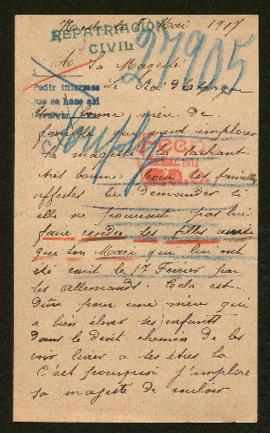 Mai 1917
REPATRIACION
CIVIL
27905
A Sa Majesté
Le Roi d'Espagne
Pedir informes
que se hace así
bonne mère de
famille qui vient implorer
sa majesté la sachant
très bonne pour les familles
affectés de demander si
elle ne pourrait pas lui
faire rendre ses filles ainsi
que son Mari qui lui ont
été ravit le 17 Fevrier par
les allemands. Cela est
dure pour une mère qui
a bien élever ses enfants
dans le Droit chemin de les
voir livrer a ses êtres la
C'est pourquoi j'implore
sa majesté de vouloir